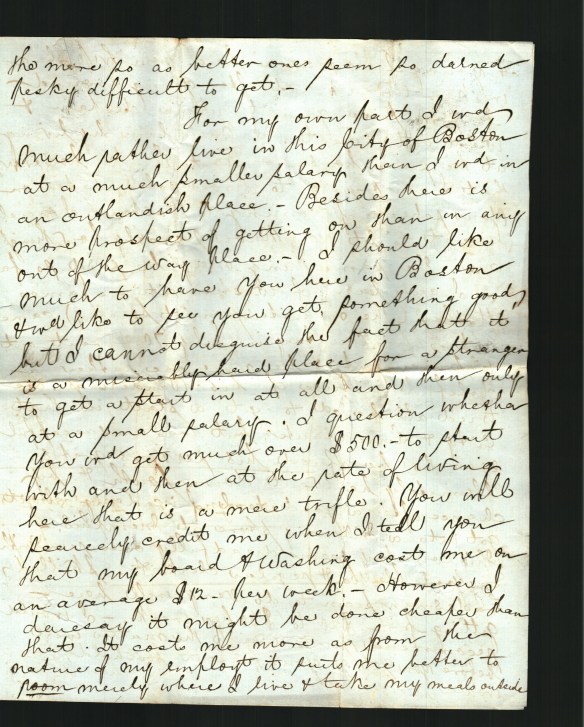 the more so as better ones seem so darned
pesky difficult to get.-
For my own part I wd
much rather live in this City of Boston
at a much smaller salary than I wd in
an outlandish place.- Besides there is
more prospect of getting on than in any
out of the way place.- I should like
much to have you here in Boston
& wd like to see you get something good,
but I cannot disguise the fact that it
is a miserably hard place for a stranger
to get a start in at all and then only
at a small salary. I question whether
you wd get much over $500.- to start
with and then at the rate of living
here that is a mere trifle. You will
scarcely credit me when I tell you
that my board & washing cost me on
an average $12- per week.- However I
daresay it might be done cheaper than
that. It costs me more as from the
nature of my employt it suits me better to
room merely where I live & take my meals outside